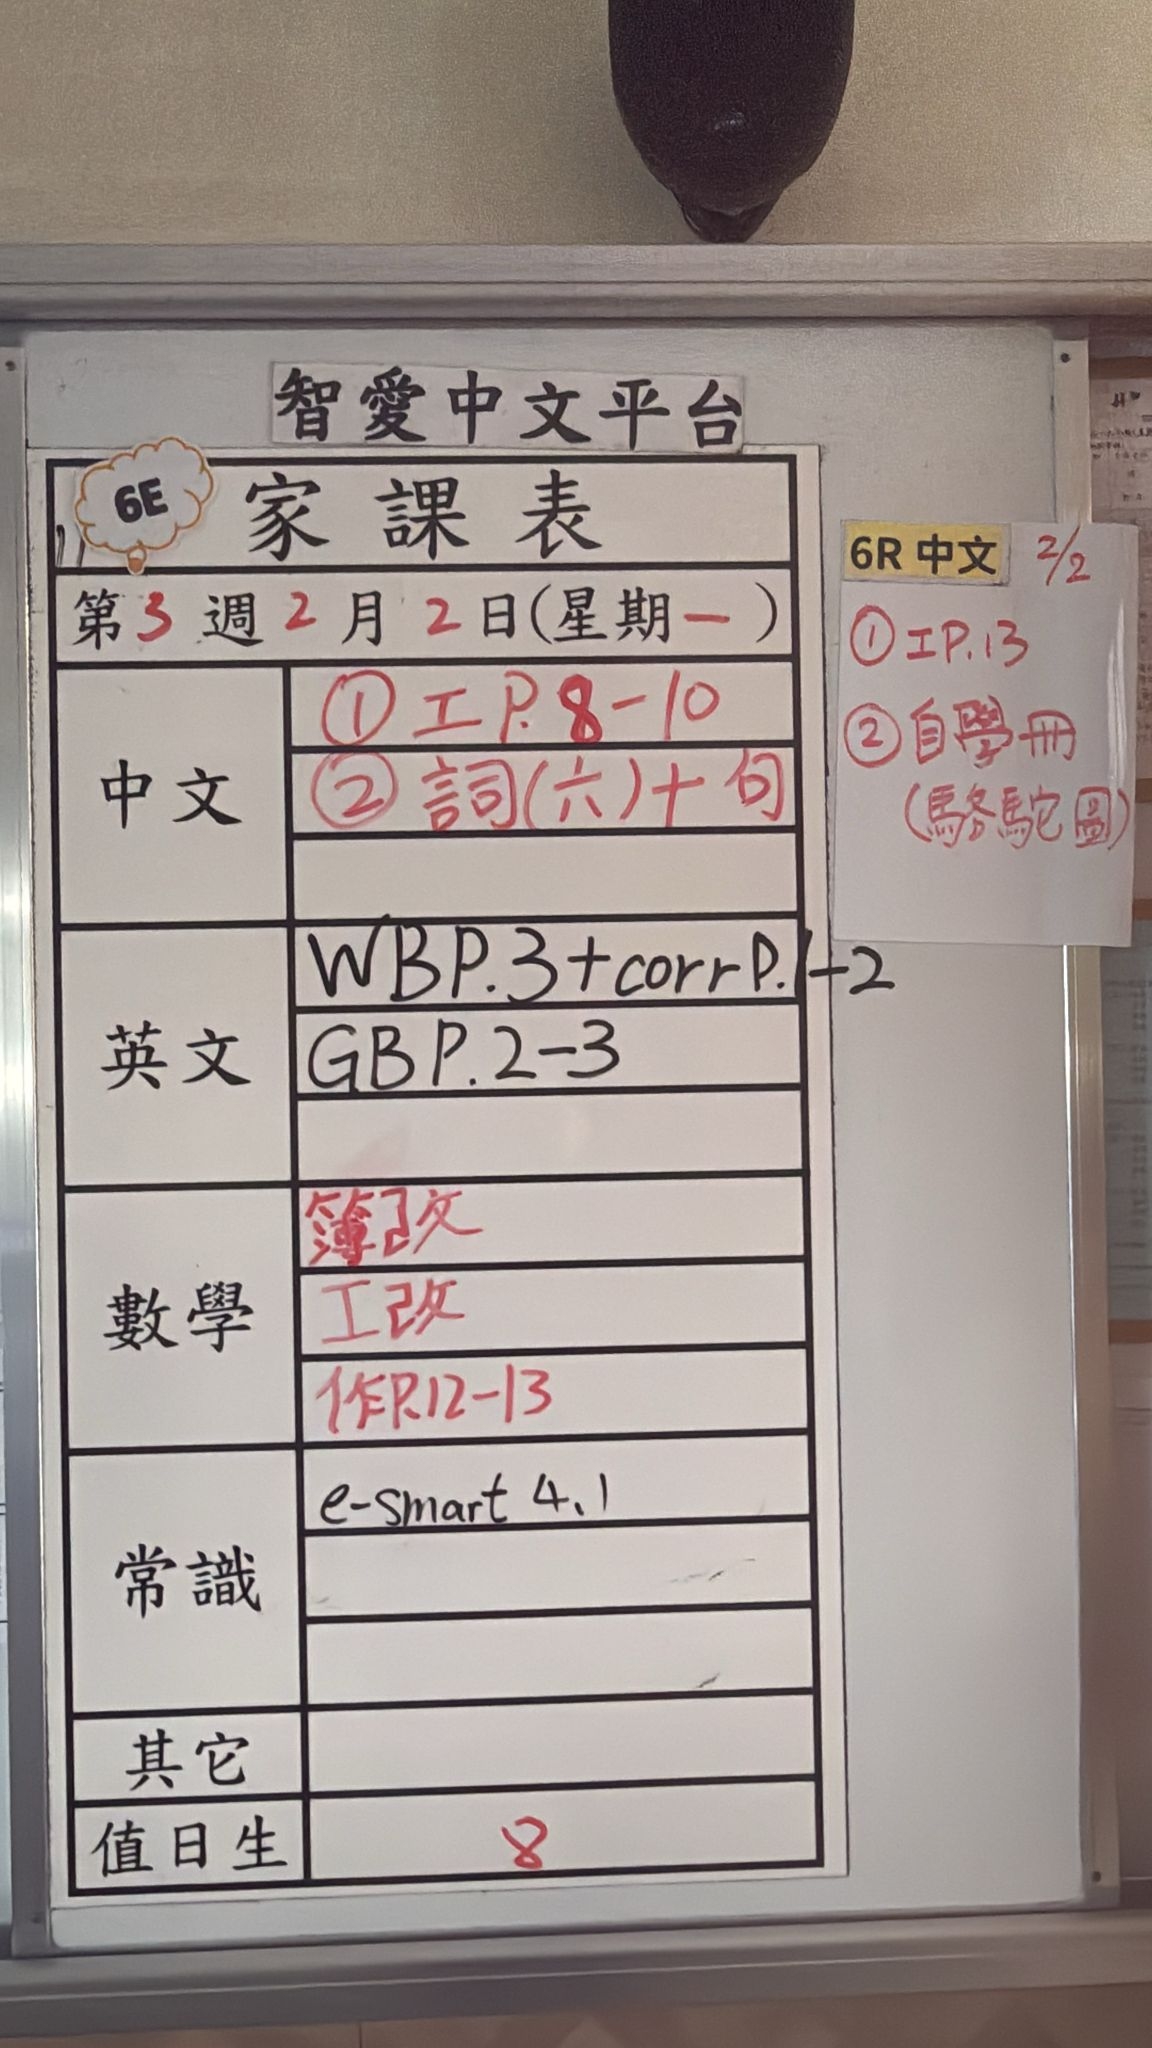 智愛中文平台
6E
家課表
第3週2月2日(星期一)
中文
① 工P.8-10
② 詞(六)+句
英文
WBP.3+corrP.1-2
GBP.2-3
數學
簿改
工改
作P.12-13
常識
e-smart 4.1
其它
值日生
8
6R 中文 2/2
① 工P.13
② 自學冊
(駱駝圖)